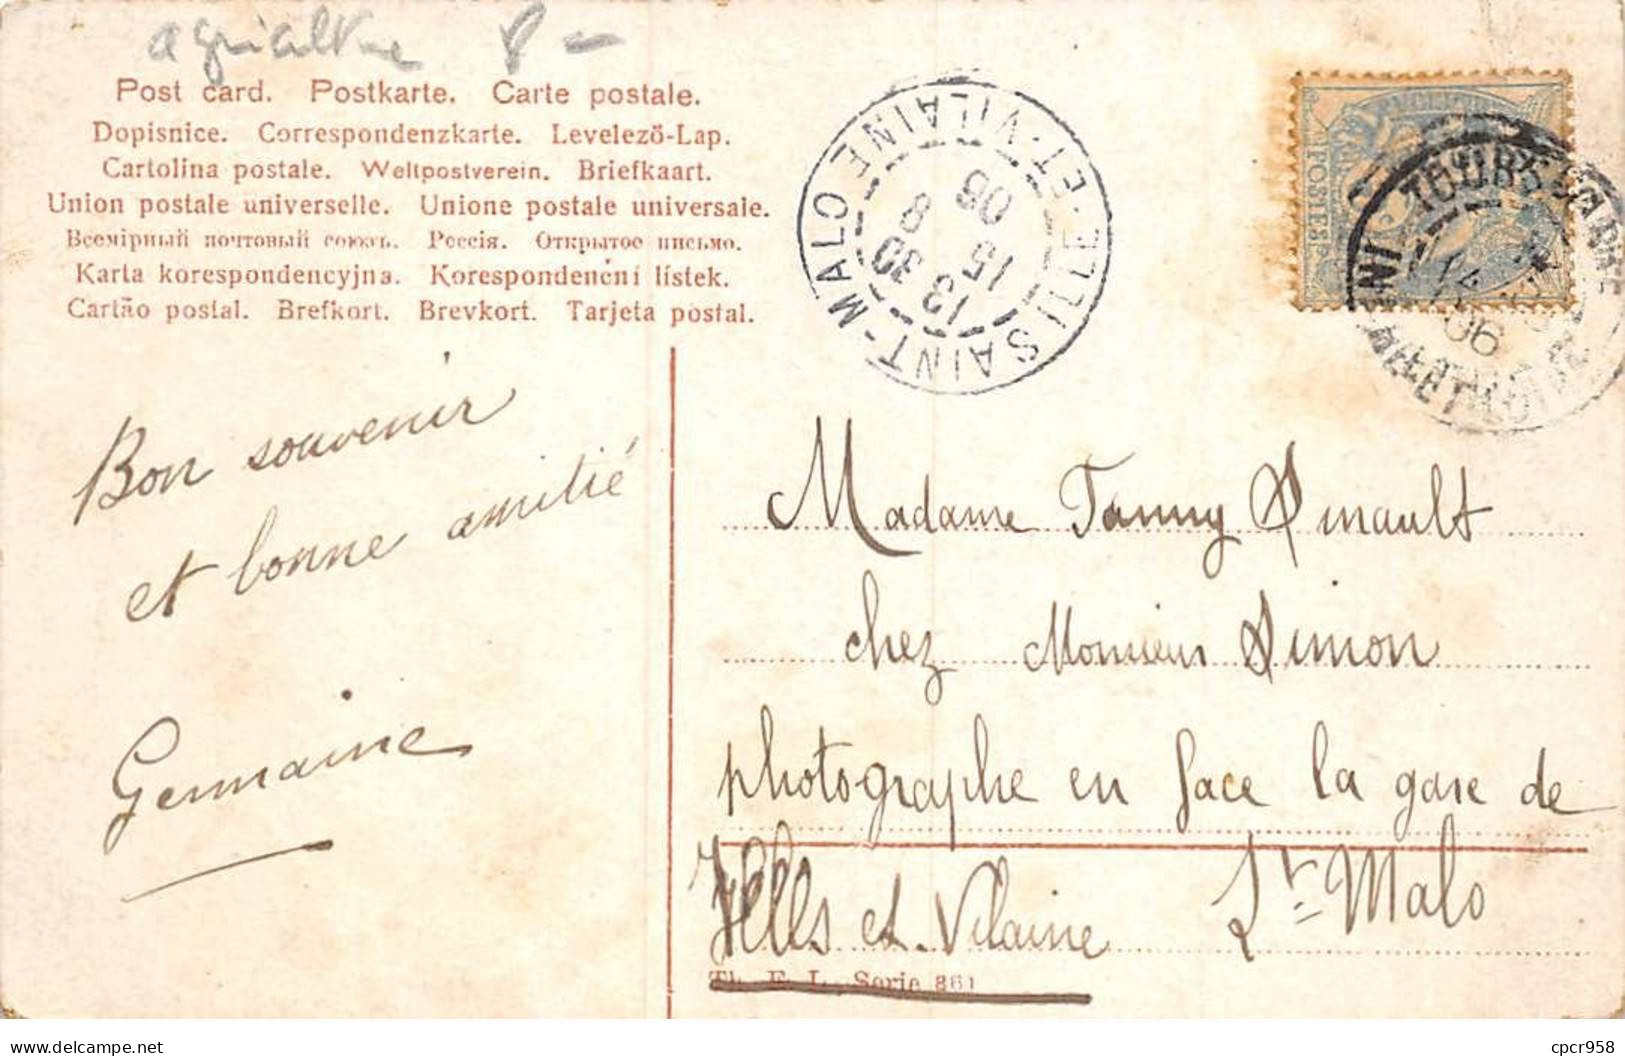 agriculture 8 -
Post card. Postkarte. Carte postale.
Dopisnice. Correspondenzkarte. Levelező-Lap.
Cartolina postale. Weltpostverein. Briefkaart.
Union postale universelle. Unione postale universale.
Всемірный почтовый союзъ. Россія. Открытое письмо.
Karta korespondencyjna. Korespondenční lístek.
Cartão postal. Brefkort. Brevkort. Tarjeta postal.
SAINT-MALO
ILLE-ET-VILAINE
13 30
15 8
06
POSTES
TOURS
06
Bon souvenir
et bonne amitié
Germaine
Madame Fanny Sinault
chez Monsieur Simon
photographe en face la gare de
Ille et Vilaine St Malo
Th. E. L. Serie 861
cpcr958